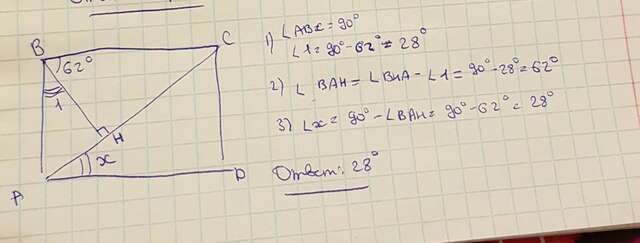 B
C
62°
1
H
x
A
D
1) ∠ABC = 90°
∠1 = 90° - 62° = 28°
2) ∠ BAH = ∠BHA - ∠1 = 90° - 28° = 62°
3) ∠x = 90° - ∠BAH = 90° - 62° = 28°
Ответ: 28°